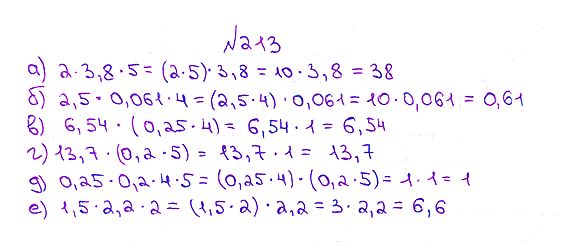 №213
а) 2·3,8·5=(2·5)·3,8=10·3,8=38
б) 2,5·0,061·4=(2,5·4)·0,061=10·0,061=0,61
в) 6,54·(0,25·4)=6,54·1=6,54
г) 13,7·(0,2·5)=13,7·1=13,7
д) 0,25·0,2·4·5=(0,25·4)·(0,2·5)=1·1=1
е) 1,5·2,2·2=(1,5·2)·2,2=3·2,2=6,6